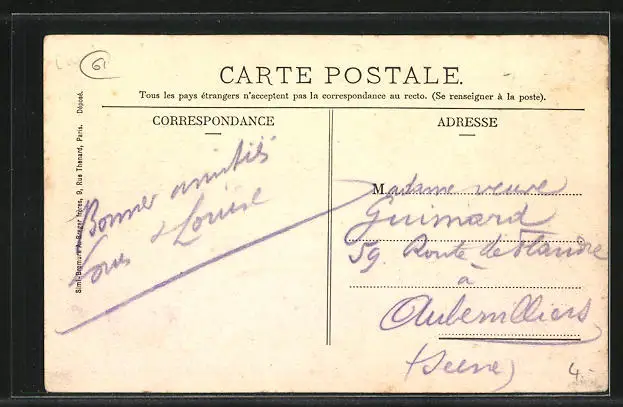 61
CARTE POSTALE.
Tous les pays étrangers n'acceptent pas la correspondance au recto. (Se renseigner à la poste).
CORRESPONDANCE
ADRESSE
Bonnes amitiés
& Louise
Madame veuve
Guimard
59 Route de Flandre
à
Aubervilliers
(Seine)
4.-
Simili-Bromure A. Breger frères, 9, Rue Thenard, Paris. Déposé.